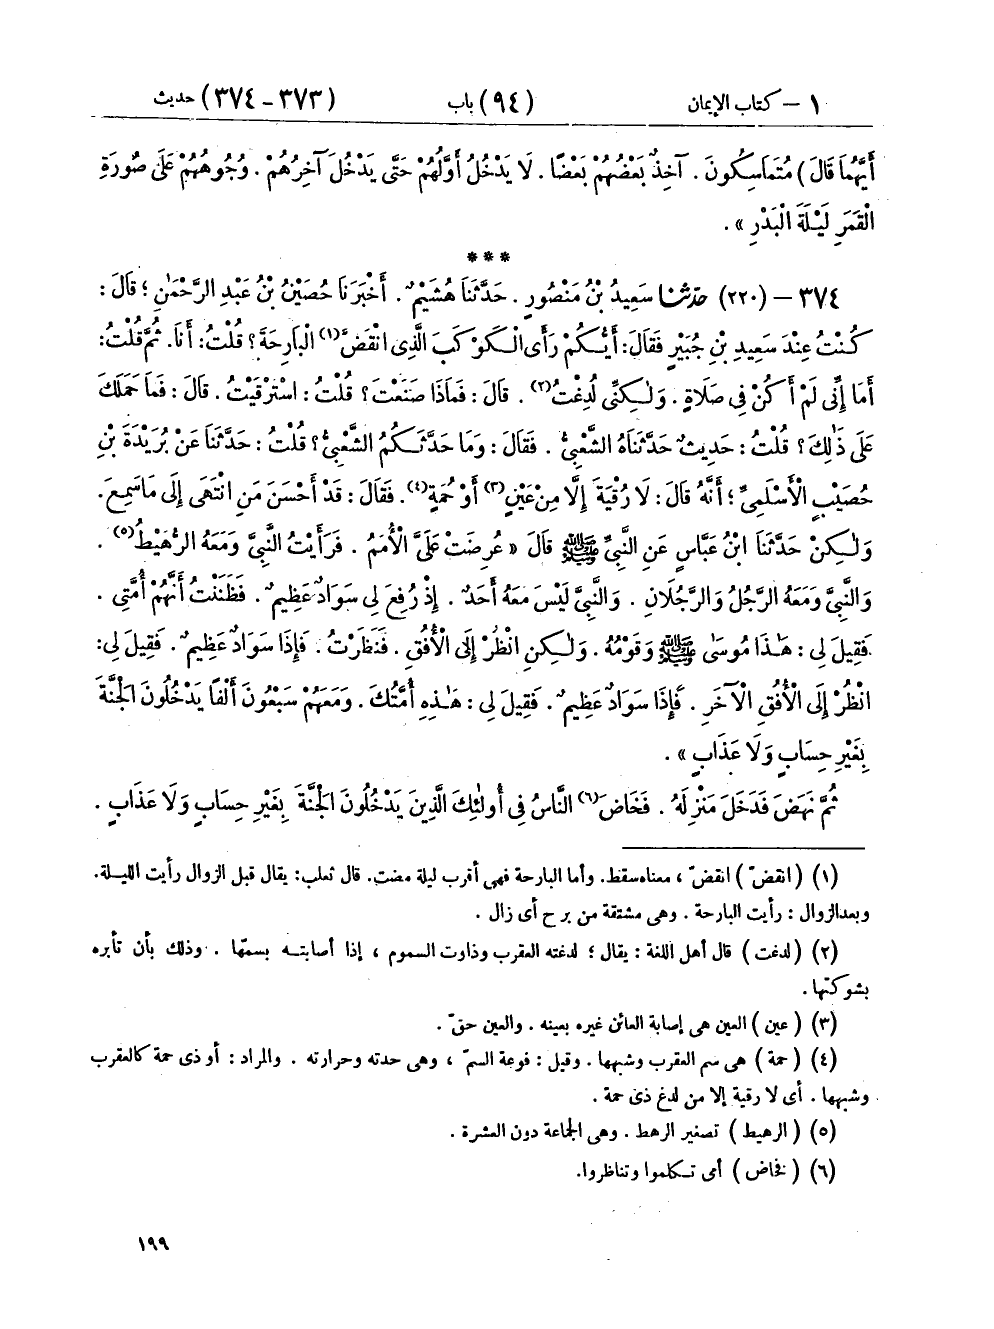 ١ – كتاب الإيمان (٩٤) باب (٣٧٣-٣٧٤) حديث
أَيُّهُمَا قَالَ) مُتَمَاسِكُونَ. آخِذٌ بَعْضُهُمْ بَعْضًا. لَا يَدْخُلُ أَوَّلُهُمْ حَتَّى يَدْخُلَ آخِرُهُمْ. وُجُوهُهُمْ عَلَى صُورَةِ
الْقَمَرِ لَيْلَةَ الْبَدْرِ».
***
٣٧٤ – (٢٢٠) حدّثنا سَعِيدُ بْنُ مَنْصُورٍ. حَدَّثَنَا هُشَيْمٌ. أَخْبَرَنَا حُصَيْنُ بْنُ عَبْدِ الرَّحْمٰنِ؛ قَالَ:
كُنْتُ عِنْدَ سَعِيدِ بْنِ جُبَيْرٍ فَقَالَ: أَيُّكُمْ رَأَى الْكَوْكَبَ الَّذِى انْقَضَّ(١) الْبَارِحَةَ؟ قُلْتُ: أَنَا. ثُمَّ قُلْتُ:
أَمَا إِنِّى لَمْ أَكُنْ فِى صَلَاةٍ. وَلٰكِنِّى لُدِغْتُ(٢). قَالَ: فَمَاذَا صَنَعْتَ؟ قُلْتُ: اسْتَرْقَيْتُ. قَالَ: فَمَا حَمَلَكَ
عَلَى ذٰلِكَ؟ قُلْتُ: حَدِيثٌ حَدَّثَنَاهُ الشَّعْبِىُّ. فَقَالَ: وَمَا حَدَّثَكُمُ الشَّعْبِىُّ؟ قُلْتُ: حَدَّثَنَا عَنْ بُرَيْدَةَ بْنِ
حُصَيْبٍ الْأَسْلَمِىِّ؛ أَنَّهُ قَالَ: لَا رُقْيَةَ إِلَّا مِنْ عَيْنٍ(٣) أَوْ حُمَةٍ(٤). فَقَالَ: قَدْ أَحْسَنَ مَنِ انْتَهَى إِلَى مَا سَمِعَ.
وَلٰكِنْ حَدَّثَنَا ابْنُ عَبَّاسٍ عَنِ النَّبِىِّ ﷺ قَالَ «عُرِضَتْ عَلَىَّ الْأُمَمُ. فَرَأَيْتُ النَّبِىَّ وَمَعَهُ الرُّهَيْطُ(٥).
وَالنَّبِىَّ وَمَعَهُ الرَّجُلُ وَالرَّجُلَانِ. وَالنَّبِىَّ لَيْسَ مَعَهُ أَحَدٌ. إِذْ رُفِعَ لِى سَوَادٌ عَظِيمٌ. فَظَنَنْتُ أَنَّهُمْ أُمَّتِى.
فَقِيلَ لِى: هٰذَا مُوسَىٰ ﷺ وَقَوْمُهُ. وَلٰكِنِ انْظُرْ إِلَى الْأُفُقِ. فَنَظَرْتُ. فَإِذَا سَوَادٌ عَظِيمٌ. فَقِيلَ لِى:
انْظُرْ إِلَى الْأُفُقِ الْآخَرِ. فَإِذَا سَوَادٌ عَظِيمٌ. فَقِيلَ لِى: هٰذِهِ أُمَّتُكَ. وَمَعَهُمْ سَبْعُونَ أَلْفًا يَدْخُلُونَ الْجَنَّةَ
بِغَيْرِ حِسَابٍ وَلَا عَذَابٍ».
ثُمَّ نَهَضَ فَدَخَلَ مَنْزِلَهُ. فَخَاضَ(٦) النَّاسُ فِى أُولٰئِكَ الَّذِينَ يَدْخُلُونَ الْجَنَّةَ بِغَيْرِ حِسَابٍ وَلَا عَذَابٍ.
(١) (انقضّ) انقضّ، معناه سقط. وأما البارحة فهى أقرب ليلة مضت. قال ثعلب: يقال قبل الزوال رأيت الليلة.
وبعد الزوال: رأيت البارحة. وهى مشتقة من برح أى زال.
(٢) (لدغت) قال أهل اللغة: يقال؛ لدغته العقرب وذاوت السموم، إذا أصابته بسمّها. وذلك بأن تأبره
بشوكتها.
(٣) (عين) العين هى إصابة العائن غيره بعينه. والعين حقّ.
(٤) (حمة) هى سم العقرب وشبهها. وقيل: فوعة السمّ، وهى حدته وحرارته. والمراد: أو ذى حمة كالعقرب
وشبهها. أى لا رقية إلا من لدغ ذى حمة.
(٥) (الرهيط) تصغير الرهط. وهى الجماعة دون العشرة.
(٦) (فخاض) أى تكلموا وتناظروا.
١٩٩